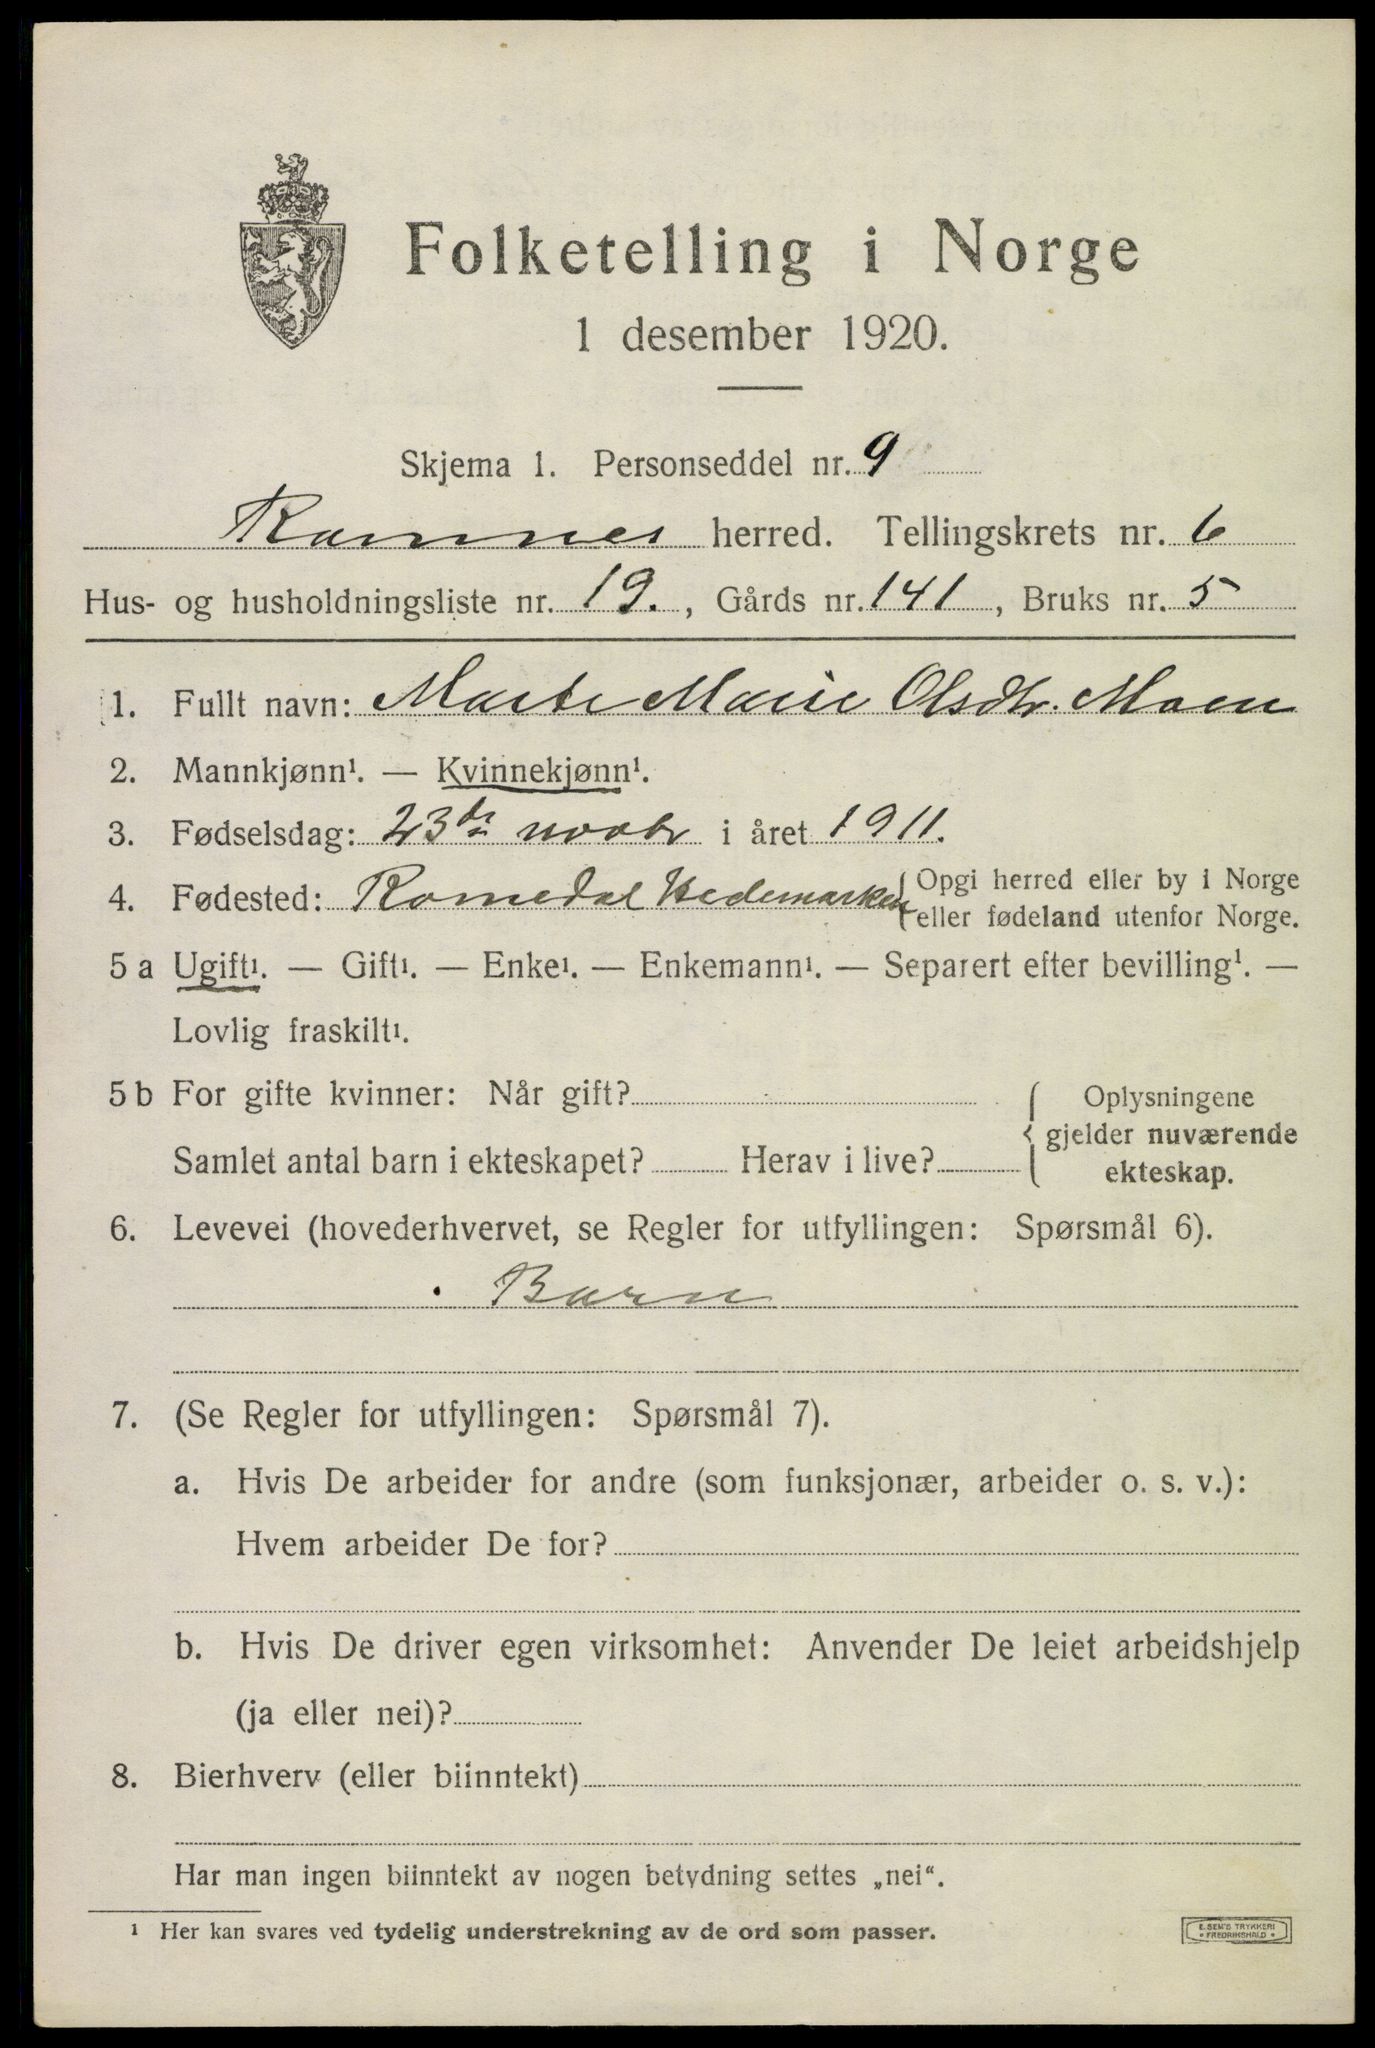 Folketelling i Norge
1 desember 1920.
Skjema 1. Personseddel nr. 9
Ramnes herred. Tellingskrets nr. 6
Hus- og husholdningsliste nr. 19., Gårds nr. 141, Bruks nr. 5
1. Fullt navn: Marte Marie Olsdtr. Moen
2. Mannkjønn¹. — Kvinnekjønn¹.
3. Fødselsdag: 23de novbr i året 1911.
4. Fødested: Romedal Hedemarken { Opgi herred eller by i Norge
eller fødeland utenfor Norge.
5 a Ugift¹. — Gift¹. — Enke¹. — Enkemann¹. — Separert efter bevilling¹. —
Lovlig fraskilt¹.
5 b For gifte kvinner: Når gift? { Oplysningene
gjelder nuværende
Samlet antal barn i ekteskapet? Herav i live? ekteskap.
6. Levevei (hovederhvervet, se Regler for utfyllingen: Spørsmål 6).
Barn
7. (Se Regler for utfyllingen: Spørsmål 7).
a. Hvis De arbeider for andre (som funksjonær, arbeider o. s. v.):
Hvem arbeider De for?
b. Hvis De driver egen virksomhet: Anvender De leiet arbeidshjelp
(ja eller nei)?
8. Bierhverv (eller biinntekt)
Har man ingen biinntekt av nogen betydning settes „nei“.
¹ Her kan svares ved tydelig understrekning av de ord som passer.
E. SEM'S TRYKKERI
• FREDRIKSHALD •